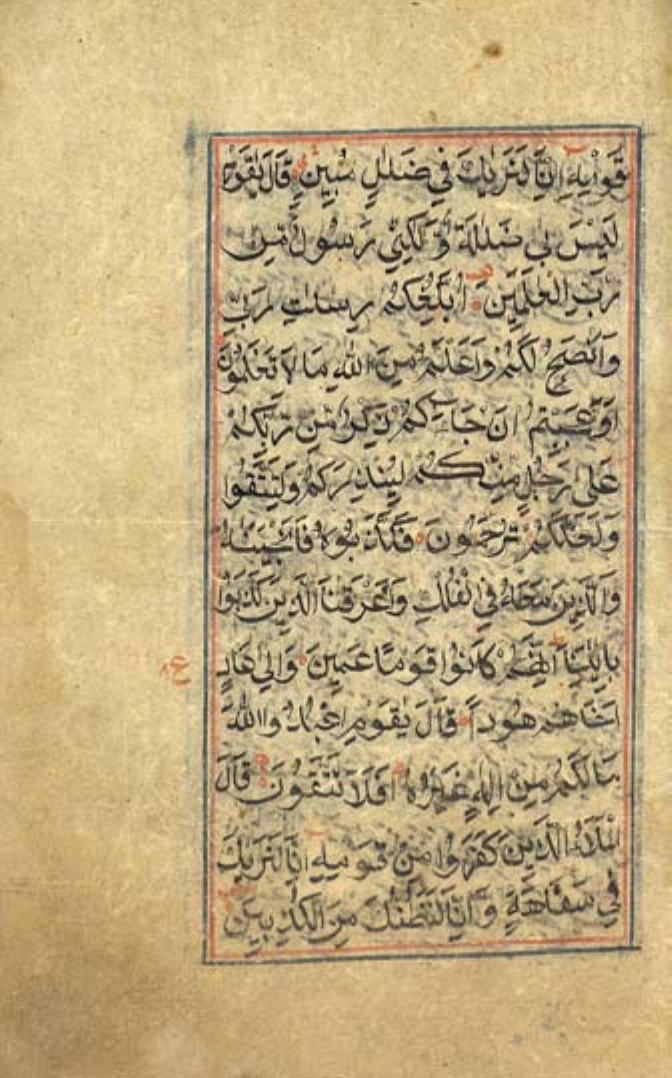 قَوْمِهِ اِنَّا لَنَرٰىكَ فِي ضَلٰلٍ مُبِينٍ قَالَ يٰقَوْمِ
لَيْسَ بِي ضَلٰلَةٌ وَلٰكِنِّي رَسُولٌ مِنْ
رَبِّ الْعٰلَمِينَ اُبَلِّغُكُمْ رِسٰلٰتِ رَبِّي
وَاَنْصَحُ لَكُمْ وَاَعْلَمُ مِنَ اللهِ مَا لَا تَعْلَمُونَ
اَوَعَجِبْتُمْ اَنْ جَاءَكُمْ ذِكْرٌ مِنْ رَبِّكُمْ
عَلٰى رَجُلٍ مِنْكُمْ لِيُنْذِرَكُمْ وَلِتَتَّقُوا
وَلَعَلَّكُمْ تُرْحَمُونَ فَكَذَّبُوهُ فَاَنْجَيْنٰهُ
وَالَّذِينَ مَعَهُ فِي الْفُلْكِ وَاَغْرَقْنَا الَّذِينَ كَذَّبُوا
بِاٰيٰتِنَا اِنَّهُمْ كَانُوا قَوْمًا عَمِينَ وَاِلٰى عَادٍ
اَخَاهُمْ هُودًا قَالَ يٰقَوْمِ اعْبُدُوا اللهَ
مَا لَكُمْ مِنْ اِلٰهٍ غَيْرُهُ اَفَلَا تَتَّقُونَ قَالَ
الْمَلَاُ الَّذِينَ كَفَرُوا مِنْ قَوْمِهِ اِنَّا لَنَرٰىكَ
فِي سَفَاهَةٍ وَاِنَّا لَنَظُنُّكَ مِنَ الْكٰذِبِينَ